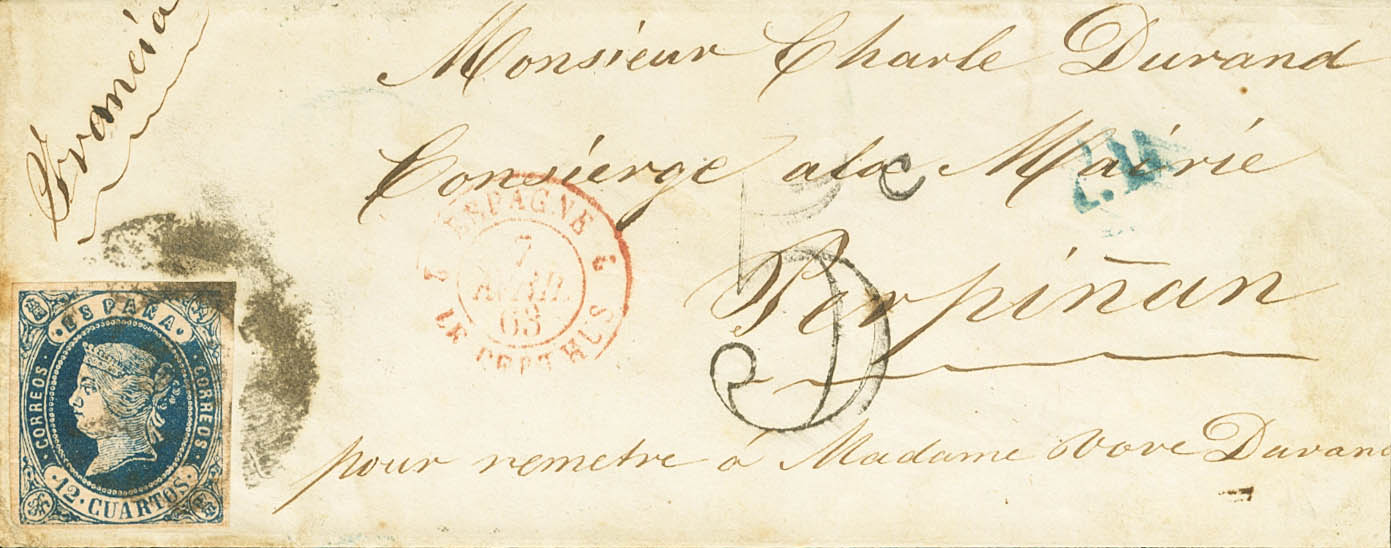 Francia
Monsieur Charle Durand
Consierge a la Mairie
Perpiñan
pour remetre a Madame vove Durand
ESPAGNE
7
AVRIL
63
LE PERTHUS
5 c
ESPAÑA
CORREOS
CORREOS
12 CUARTOS.